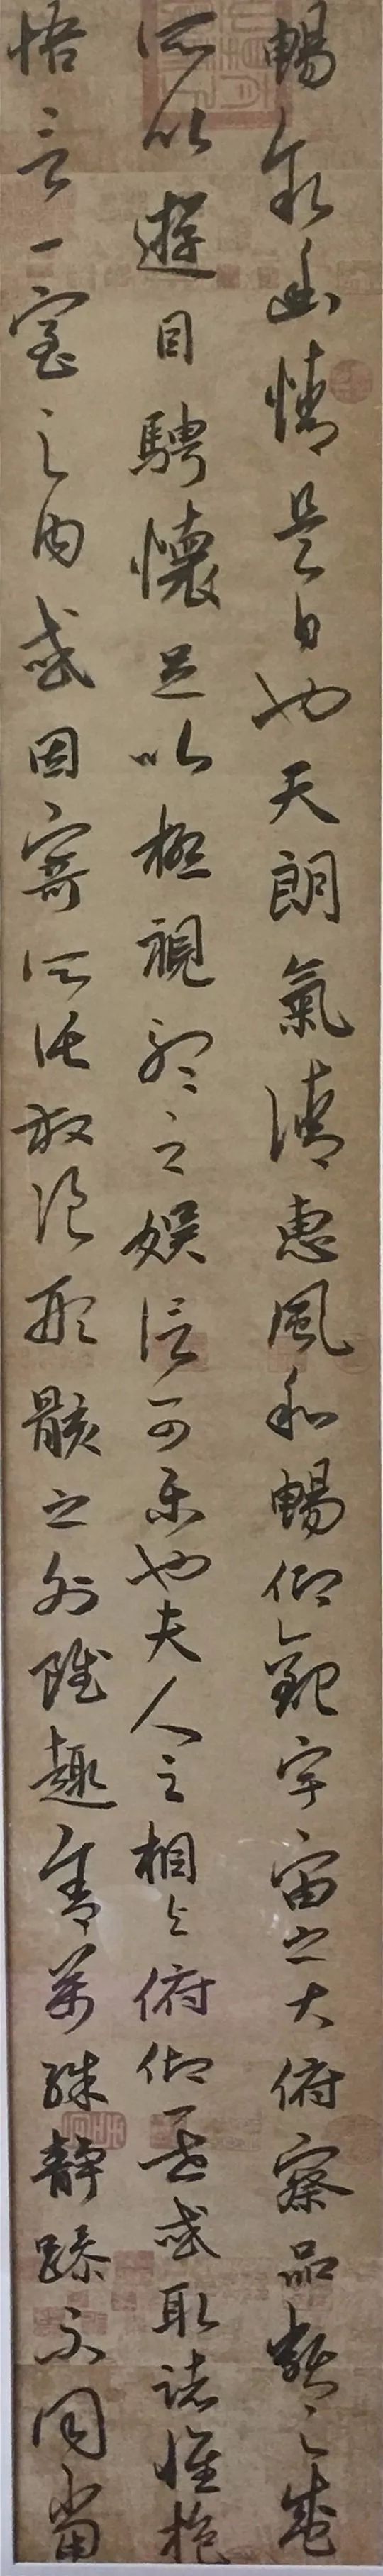 暢叙幽情是日也天朗氣清惠風和暢仰觀宇宙之大俯察品類之盛
所以遊目騁懷足以極視聽之娛信可樂也夫人之相與俯仰一世或取諸懷抱
悟言一室之内或因寄所託放浪形骸之外雖趣舍萬殊靜躁不同當